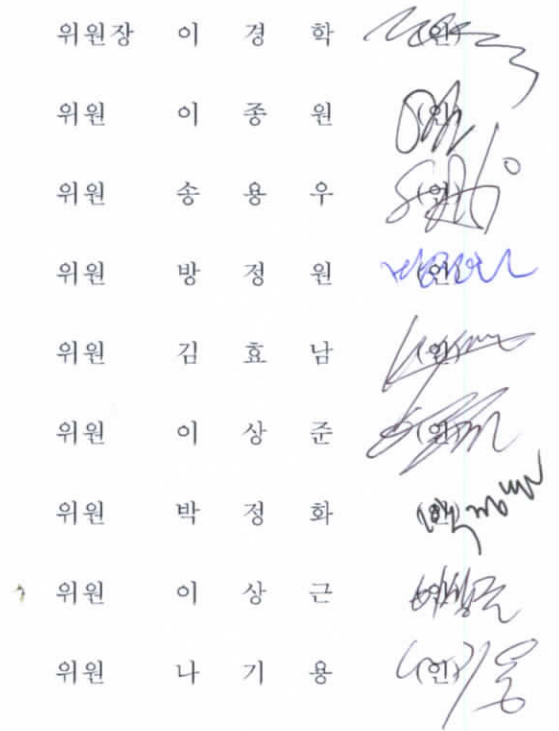 위원장 이 경 학 (인)
위원 이 종 원 (인)
위원 송 용 우 (인)
위원 방 정 원 (인)
위원 김 효 남 (인)
위원 이 상 준 (인)
위원 박 정 화 (인)
위원 이 상 근 (인)
위원 나 기 용 (인)